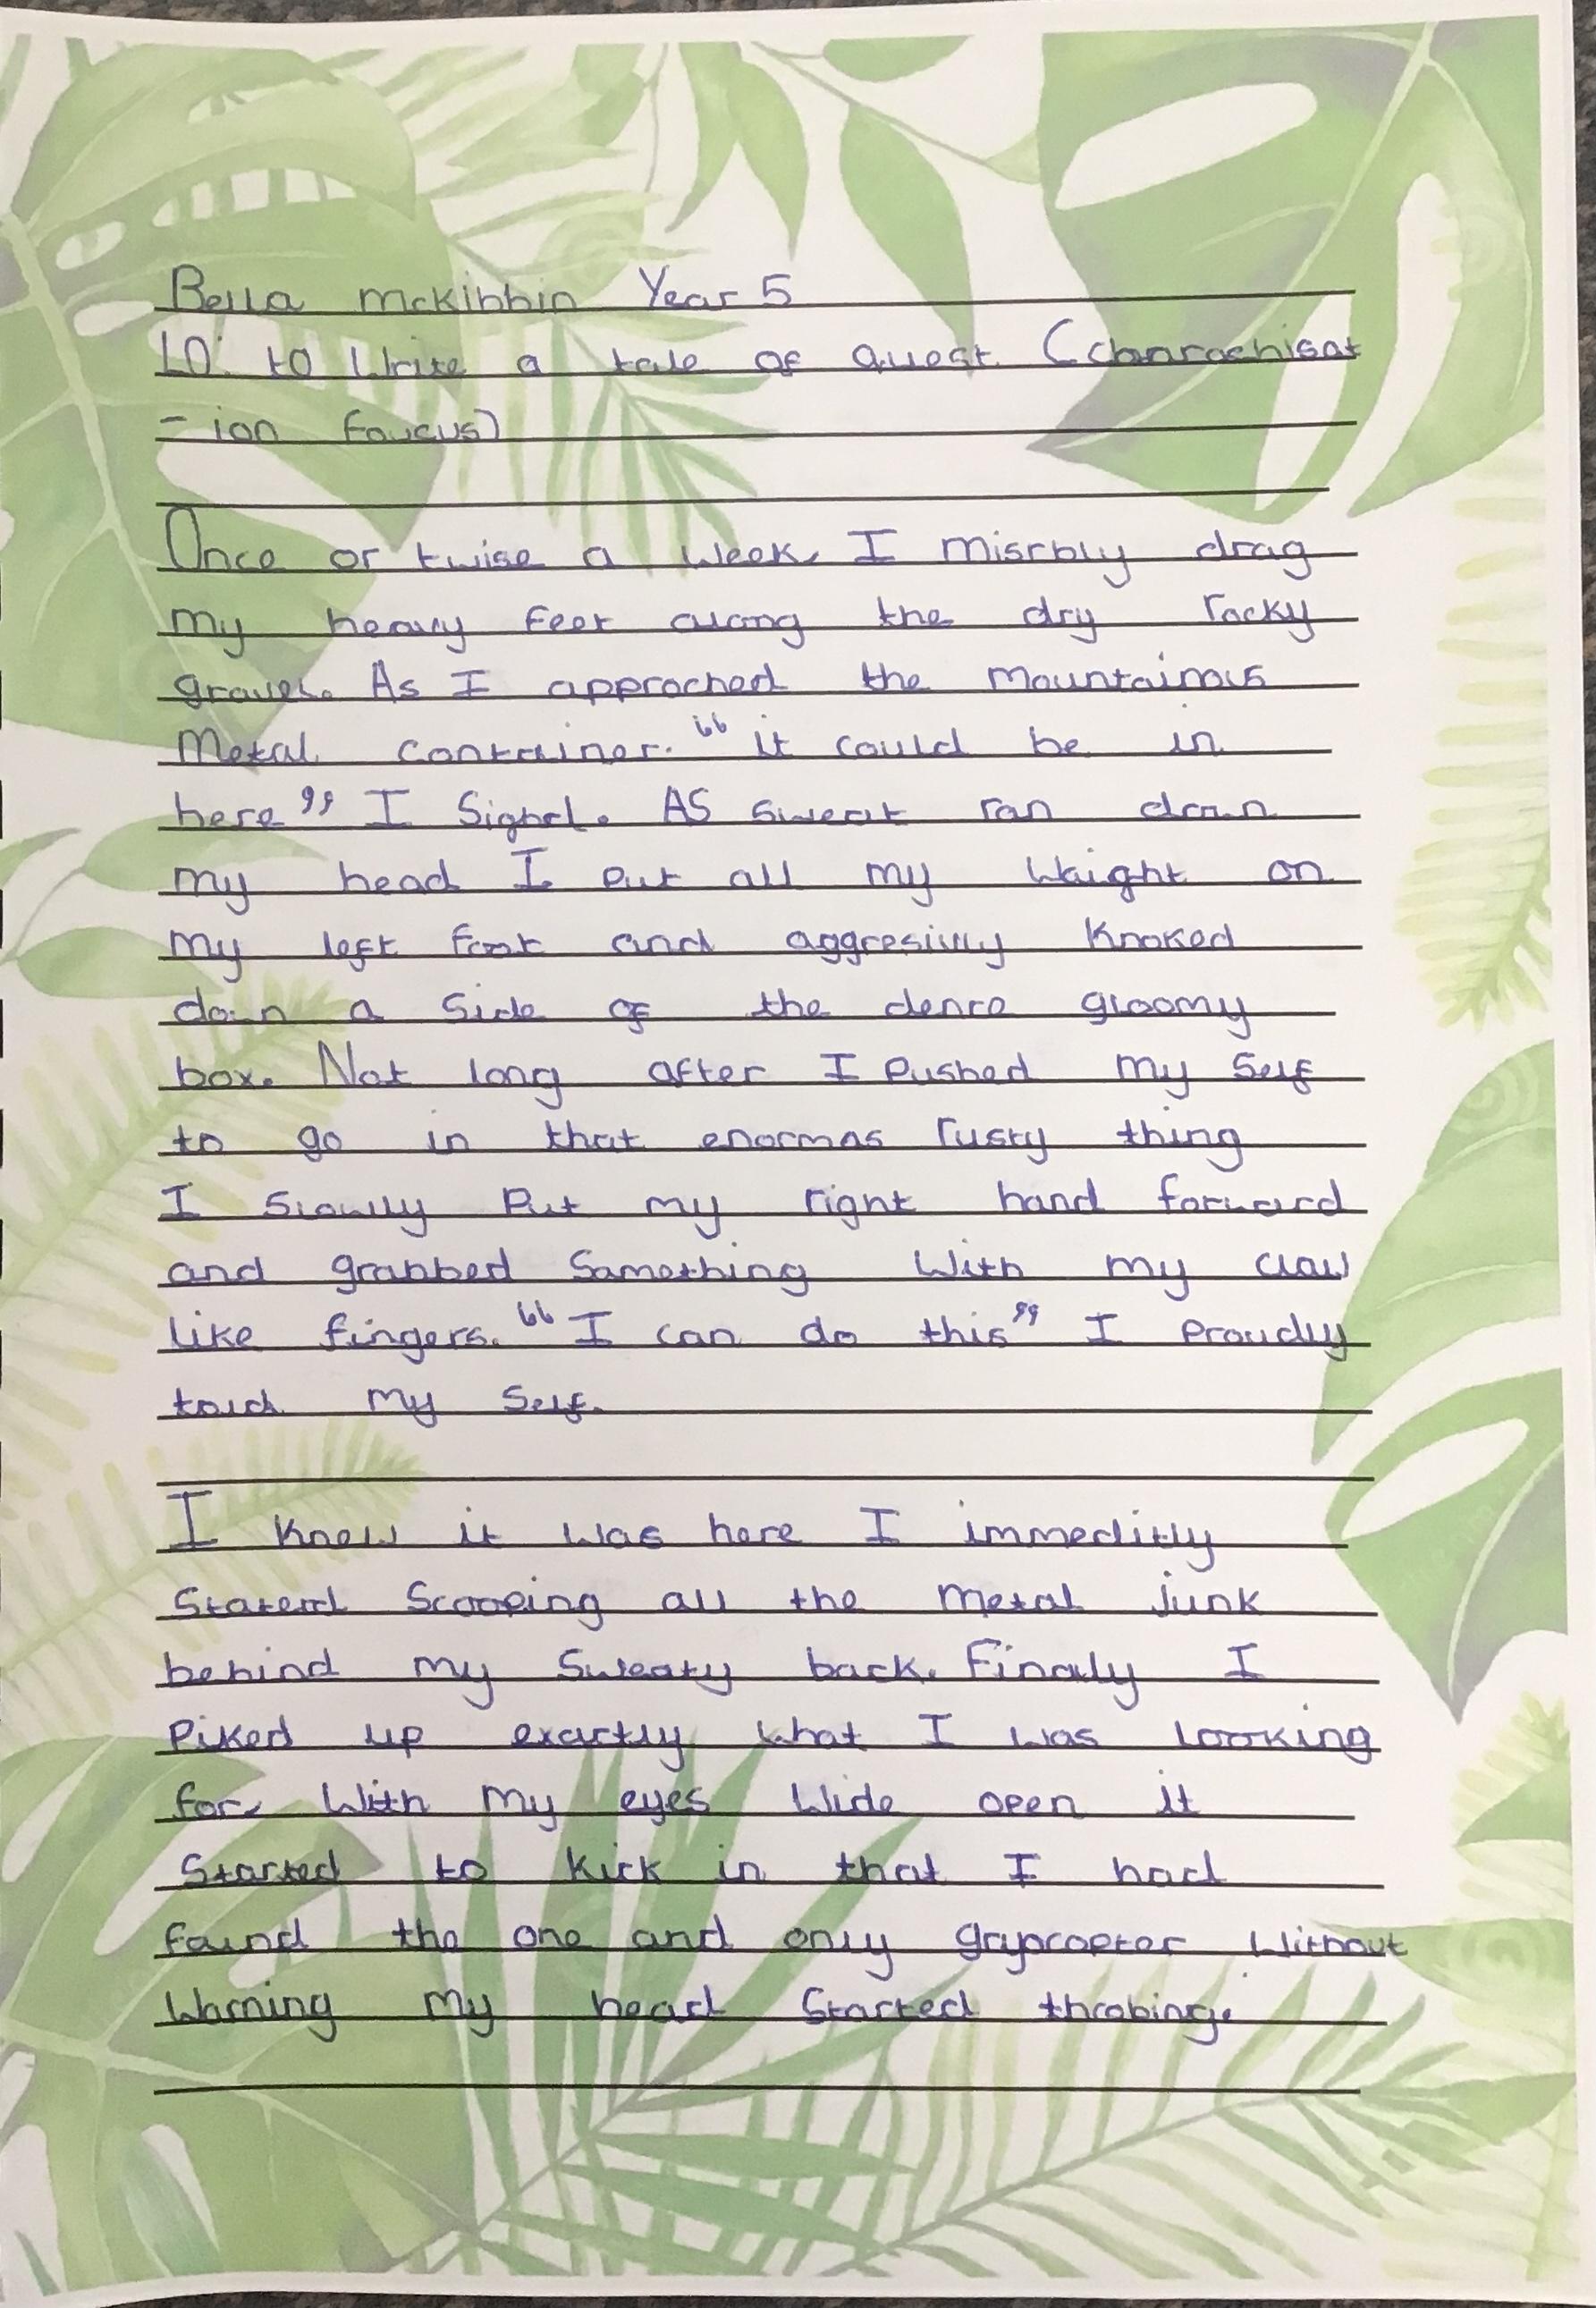 Bella mcKibbin Year 5
LO: to Write a tale of quest (charachisat
- ion foucus)
Once or twise a week, I misrbly drag
my heavy feet along the dry rocky
gravel. As I approched the mountainous
Metal container. "it could be in
here" I Sighd. AS sweat ran down
my head I put all my Waight on
my left foot and aggresivly knoked
down a side of the dence gloomy
box. Not long after I Pushed my self
to go in that enormas rusty thing
I Slowly Put my right hand forward
and grabbed Something With my claw
like fingers. "I can do this" I Proudly
told my self.
I knew it was here I immeditly
Staterd Scooping all the metal junk
behind my Sweaty back. Finaly I
Piked up exactly what I was looking
for, With my eyes Wide open it
Started to kick in that I had
found the one and only grypcopter Without
Warning my head Started throbing.